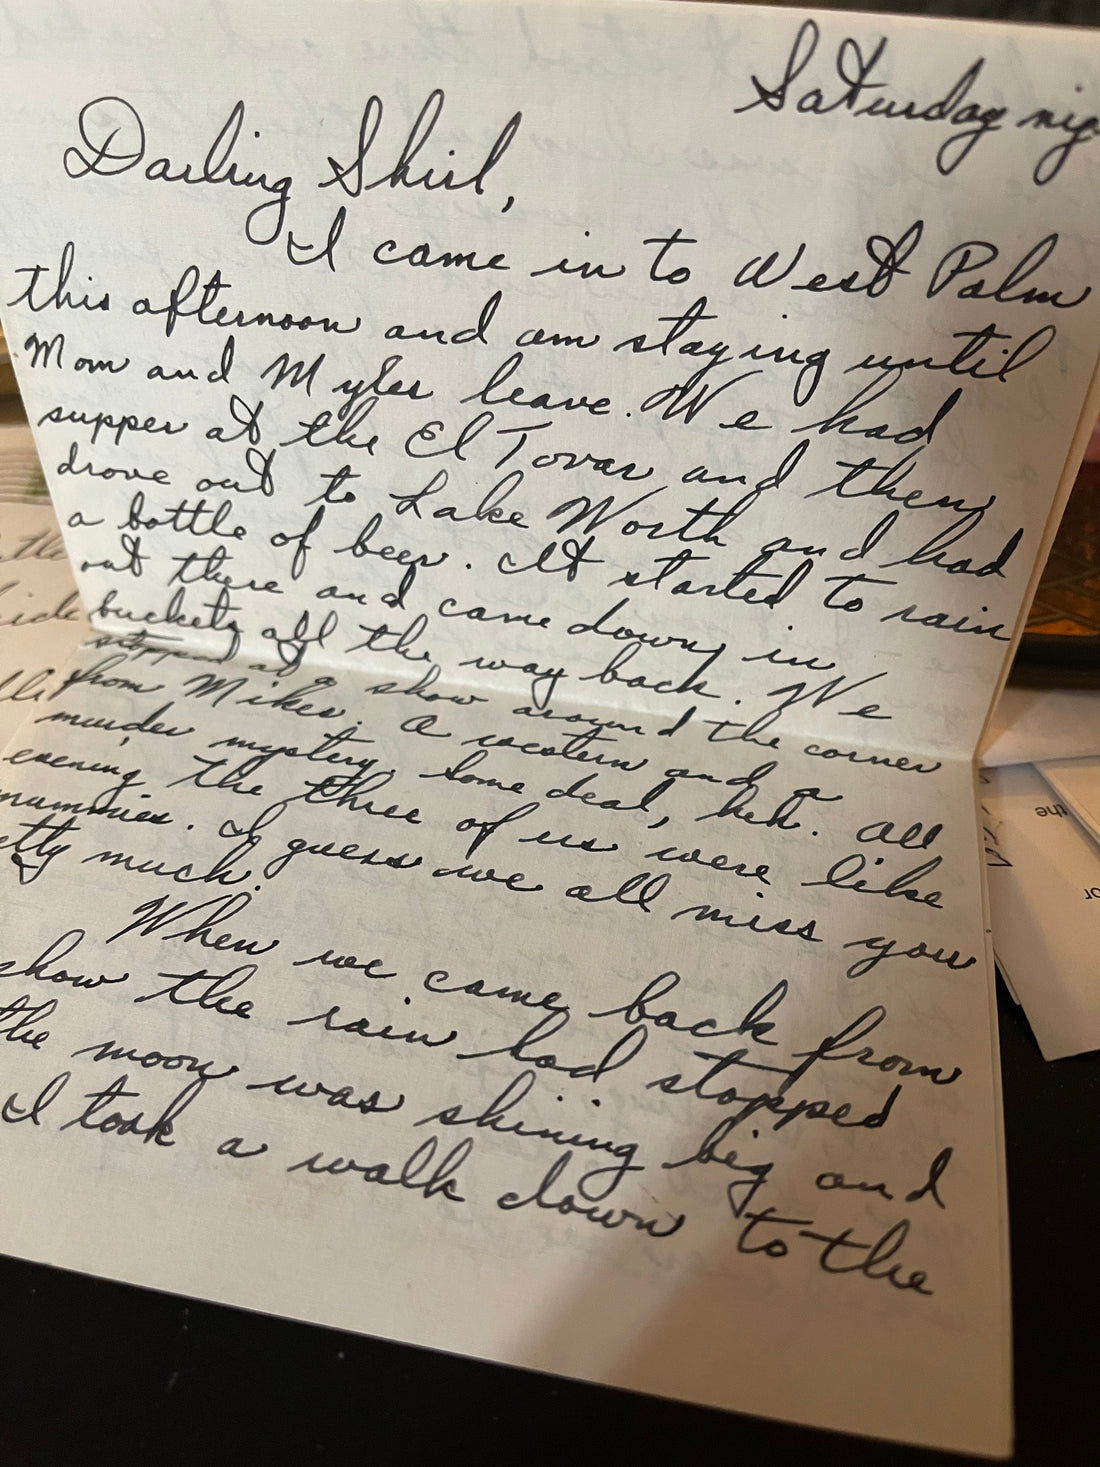 Saturday nig
Darling Shirl,
I came in to West Palm
this afternoon and am staying until
Mom and Myler leave. We had
supper at the El Tovar and then
drove out to Lake Worth and had
a bottle of beer. It started to rain
out there and came down in
buckets all the way back. We
stopped at a show around the corner
from Mikes. A western and a
murder mystery, some deal, huh. All
evening the three of us were like
mummies. I guess we all miss you
etty much.
When we came back from
show the rain had stopped
the moon was shining big and
I took a walk down to the
the
the